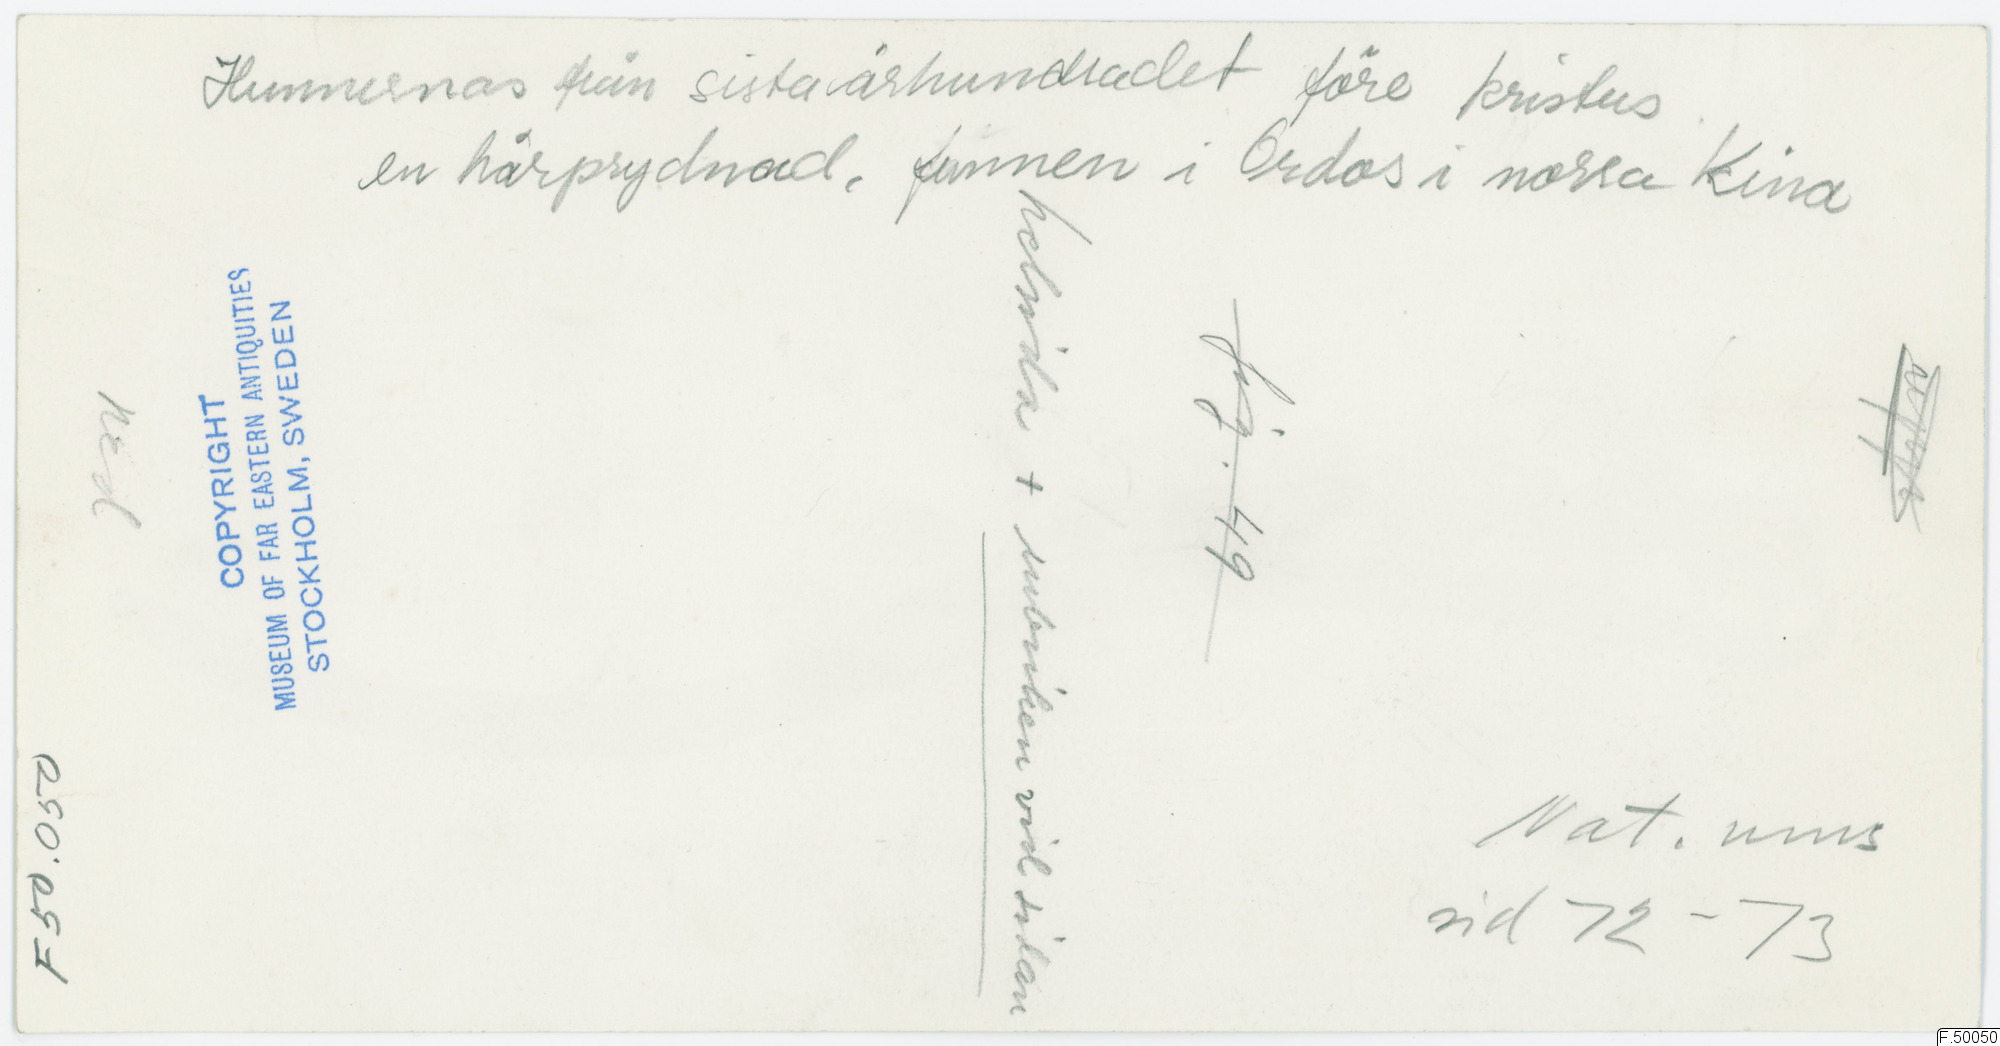 Hunnernas från sista århundradet före Kristus
en hårprydnad. funnen i Ordos i norra Kina
helsida + rubriken vid sidan
fig. 49
COPYRIGHT
MUSEUM OF FAR EASTERN ANTIQUITIES
STOCKHOLM, SWEDEN
ned
Nat. mus
sid 72-73
F.50050